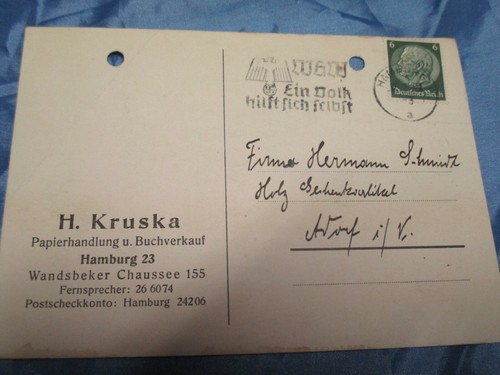 WHW
Ein Volk
hilft sich selbst
6 6
Deutsches Reich
3
a
Firma Hermann Schmidt
Holz Geschenkartikel
Adorf i/V.
H. Kruska
Papierhandlung u. Buchverkauf
Hamburg 23
Wandsbeker Chaussee 155
Fernsprecher: 26 6074
Postscheckkonto: Hamburg 24206